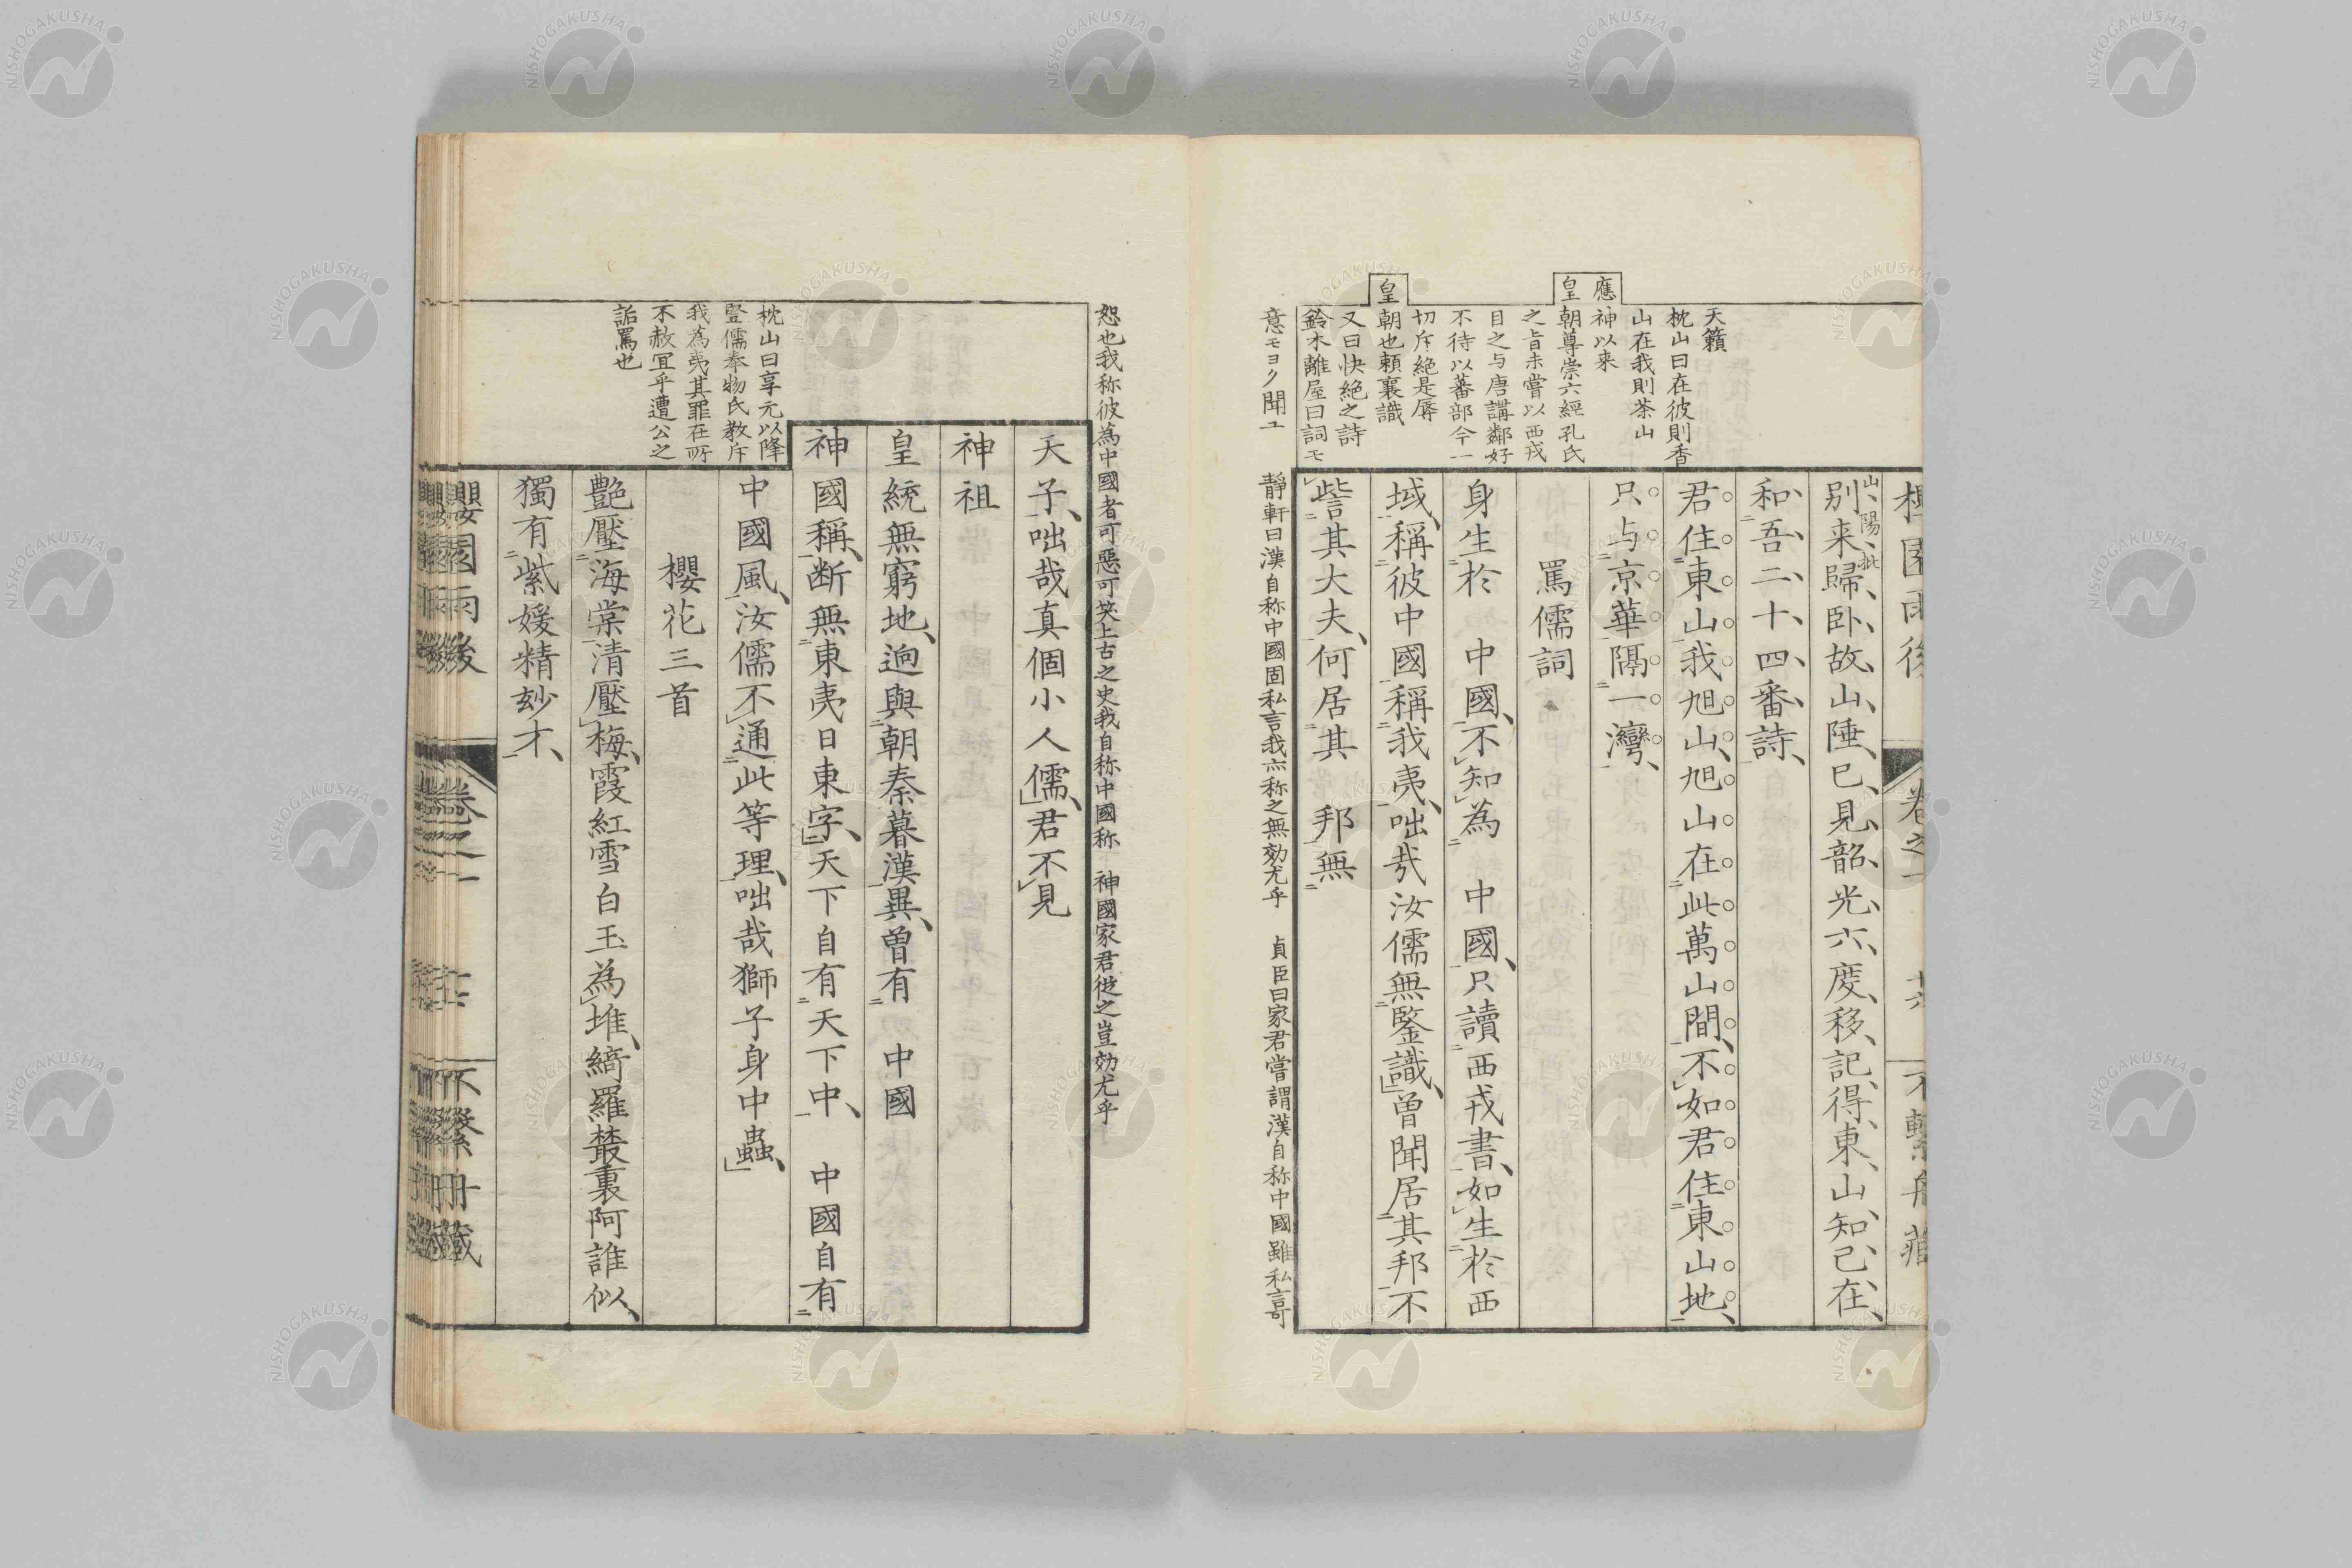 山陽批
別来歸卧故山陲已見韶光六度移記得東山知己在
和吾二十四番詩
君住東山我旭山旭山在此萬山間不如君住東山地
只与京華隔一灣
罵儒詞
身生於 中國不知為 中國只讀西戎書如生於西
域稱彼中國稱我夷咄哉汝儒無鑒識曽聞居其邦不
訾其大夫何居其 邦無
天籟
枕山曰在彼則香
山在我則茶山
應
神以来
皇
朝尊崇六經孔氏
之旨未嘗以西戎
目之与唐講鄰好
不待以蕃部今一
切斥絶是辱
皇
朝也頼襄識
又曰快絶之詩
鈴木離屋曰詞モ
意モヨク聞ユ
靜軒曰漢自称中國固私言我亦称之無効尤乎 貞臣曰家君嘗謂漢自称中國雖私言可
恕也我称彼為中國者可惡可笑上古之史我自称中國称 神國家君従之豈効尤乎
天子咄哉真個小人儒君不見
神祖
皇統無窮地逈與朝秦暮漢異曽有 中國
神國稱断無東夷日東字天下自有天下中 中國自有
中國風汝儒不通此等理咄哉獅子身中蟲
櫻花三首
艶壓海棠清壓梅霞紅雪白玉為堆綺羅叢裏阿誰似
獨有紫媛精玅才
枕山曰享元以降
豎儒奉物氏教斥
我為夷其罪在所
不赦冝乎遭公之
詬罵也
櫻園雨後
卷之一
不繫舟藏